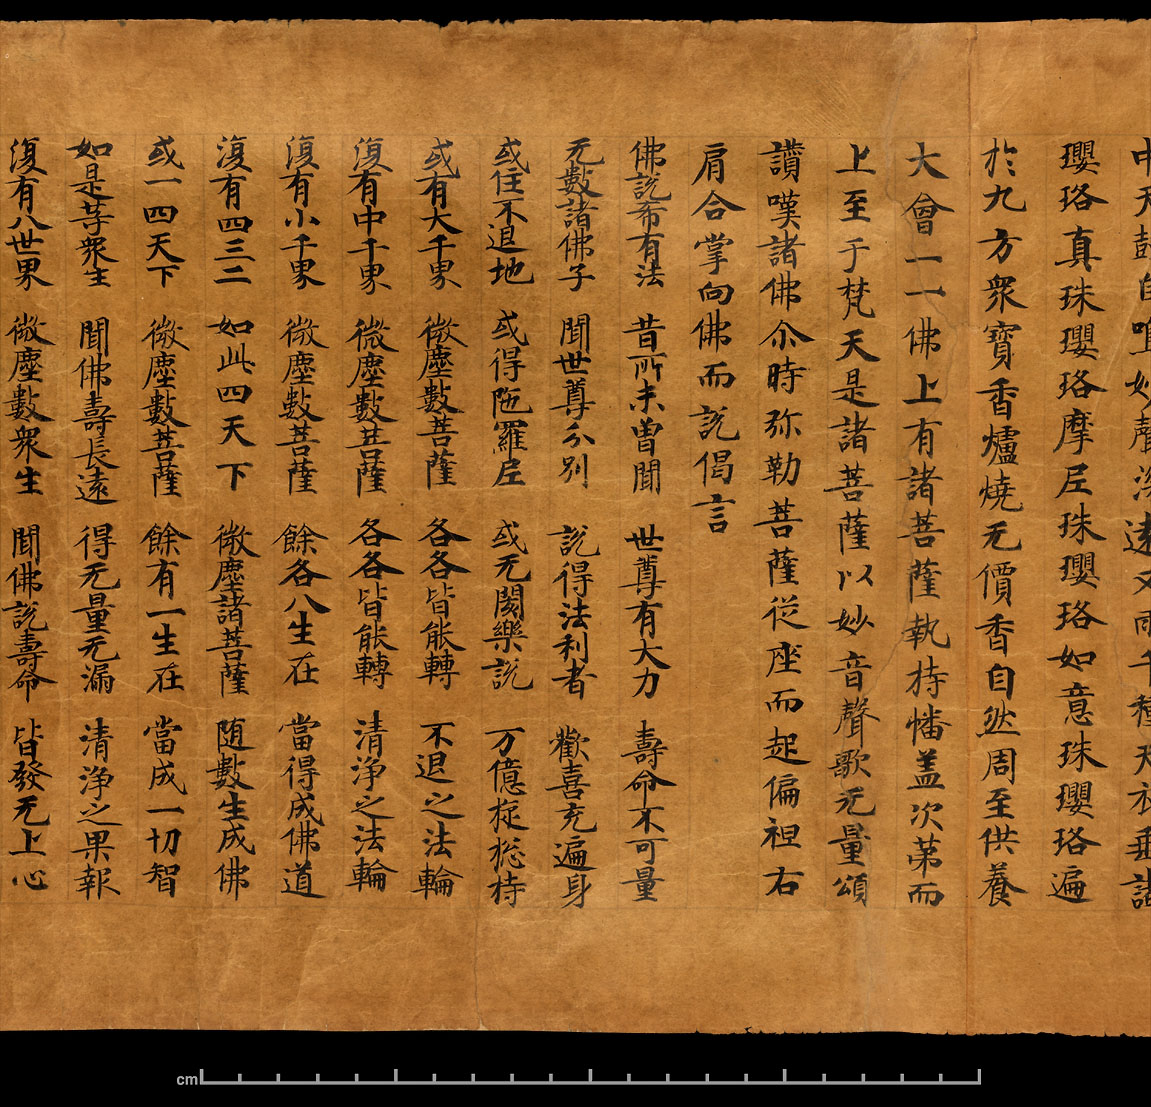 中天鼓自鳴妙聲深遠又雨千種天衣垂諸
瓔珞真珠瓔珞摩尼珠瓔珞如意珠瓔珞遍
於九方衆寶香爐燒无價香自然周至供養
大會一一佛上有諸菩薩執持幡盖次第而
上至于梵天是諸菩薩以妙音聲歌无量頌
讚嘆諸佛尒時弥勒菩薩從座而起偏袒右
肩合掌向佛而說偈言
佛說希有法 昔所未曾聞 世尊有大力 壽命不可量
无數諸佛子 聞世尊分別 說得法利者 歡喜充遍身
或住不退地 或得陁羅尼 或无閡樂說 万億旋惣持
或有大千界 微塵數菩薩 各各皆能轉 不退之法輪
復有中千界 微塵數菩薩 各各皆能轉 清淨之法輪
復有小千界 微塵數菩薩 餘各八生在 當得成佛道
復有四三二 如此四天下 微塵諸菩薩 随數生成佛
或一四天下 微塵數菩薩 餘有一生在 當成一切智
如是等衆生 聞佛壽長遠 得无量无漏 清淨之果報
復有八世界 微塵數衆生 聞佛說壽命 皆發无上心
cm